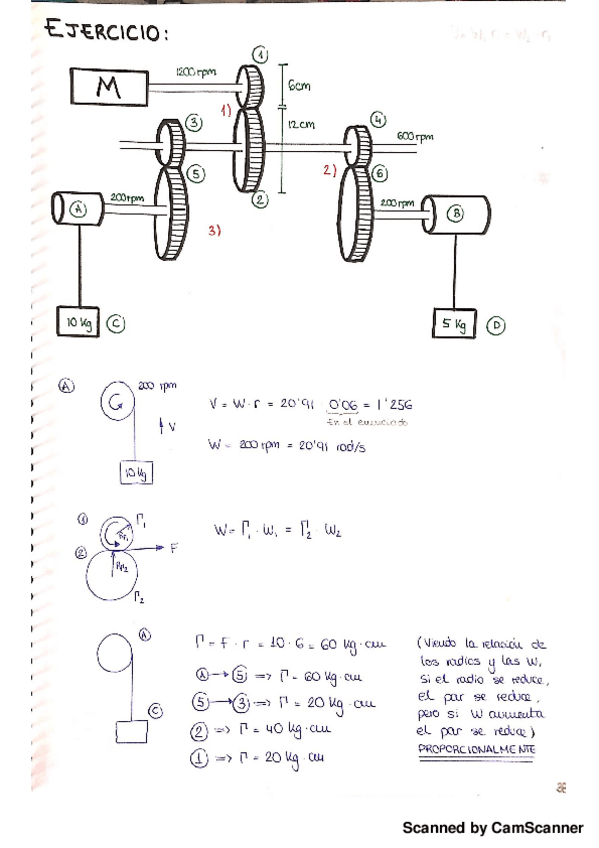 EJERCICIO:
M
1200 rpm
①
6cm
1)
12cm
③
④
600 rpm
⑤
2)
⑥
Ⓐ
200 rpm
②
200 rpm
Ⓑ
3)
10 Kg
Ⓒ
5 Kg
Ⓓ
Ⓐ
200 rpm
V = W · r = 20'91 0'06 = 1'256
En el enunciado
↑ V
W = 200 rpm = 20'91 rad/s
10 Kg
① Γ₁
W = Γ₁ · W₁ = Γ₂ W₂
② F
Γ₂
Ⓐ
Γ = F · r = 10 · 6 = 60 Kg·cm
Ⓐ → ⑤ => Γ = 60 Kg·cm
⑤ → ③ => Γ = 20 Kg·cm
Ⓒ
② => Γ = 40 Kg·cm
① => Γ = 20 Kg·cm
(Viendo la relación de
los radios y las W,
si el radio se reduce,
el par se reduce,
pero si W aumenta
el par se reduce)
PROPORCIONALMENTE
Scanned by CamScanner